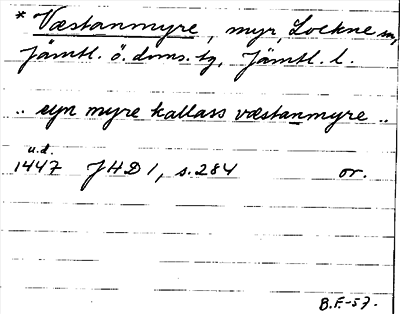 * Væstanmyre, myr, Lockne sn,
Jämtl. ö. doms. tg, Jämtl. l.
.. eyn myre kallass væstanmyre ..
u.d.
1447 JHD 1, s. 284 or.
B.F.-57.